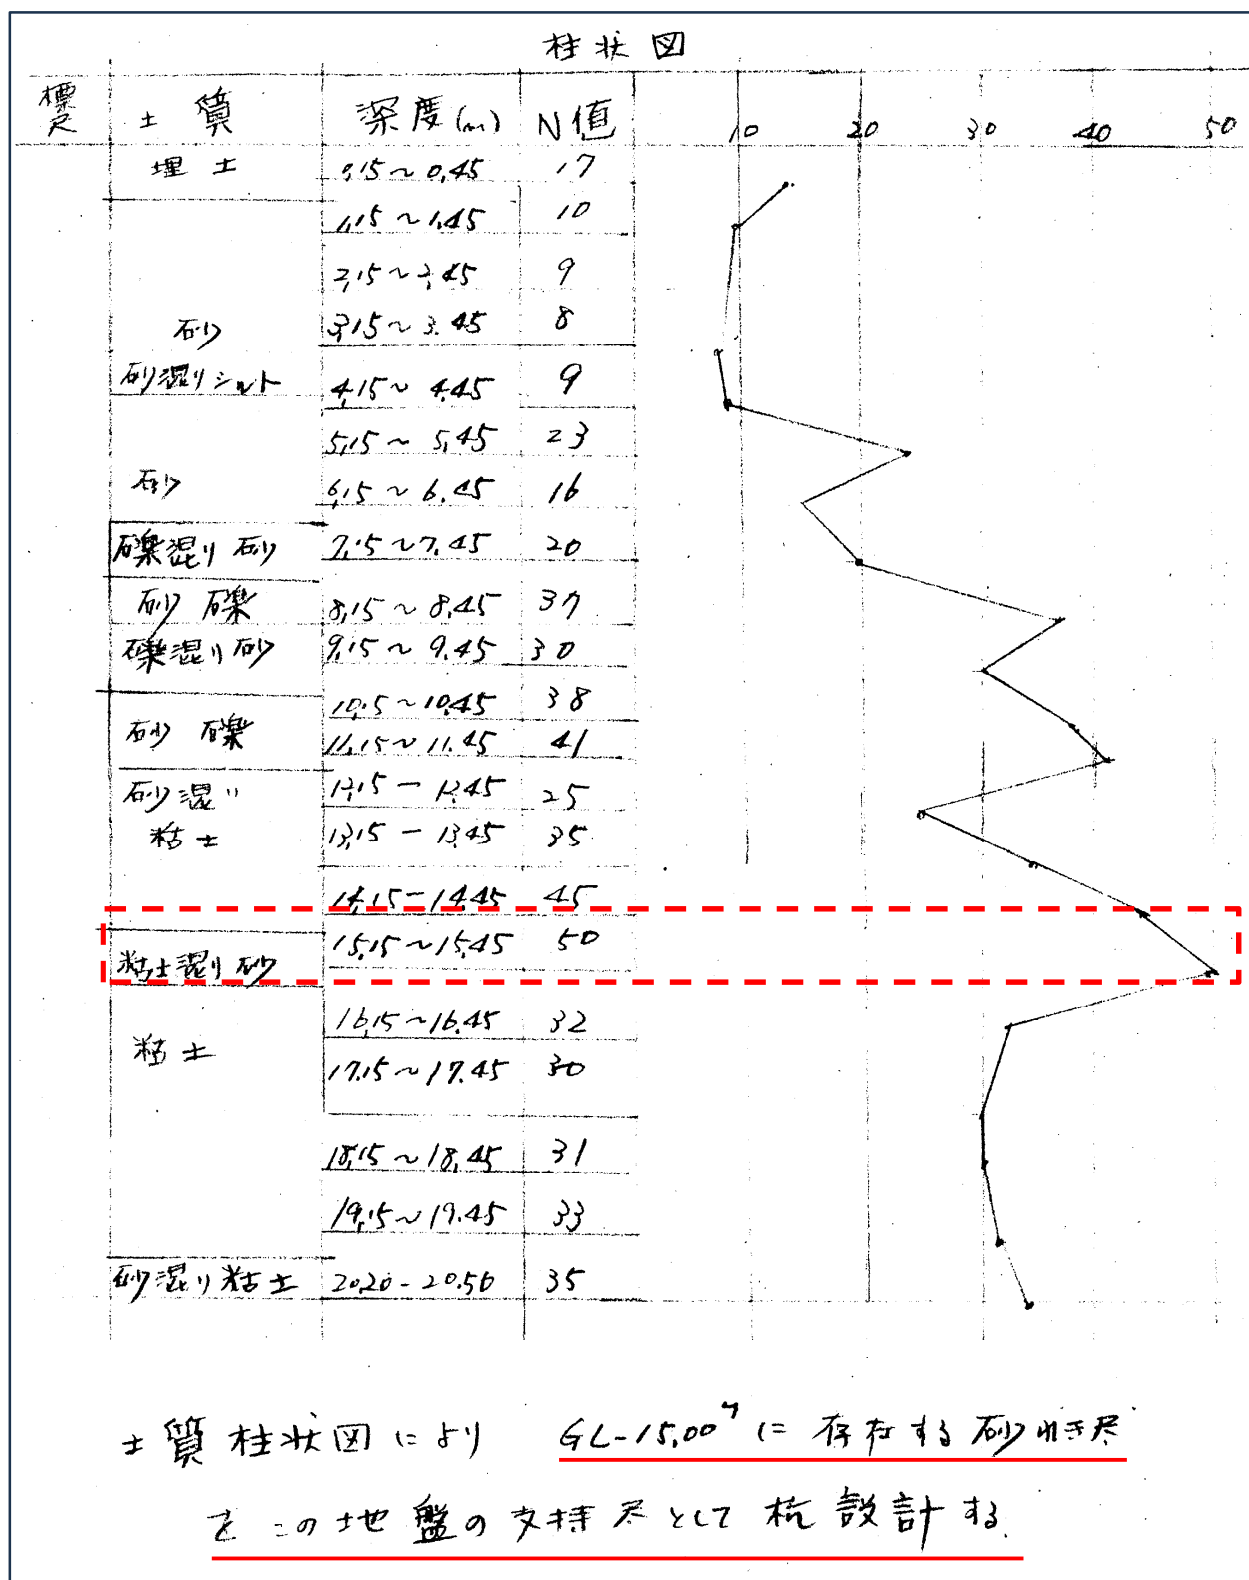 柱状図
標尺 土質 深度(m) N値 10 20 30 40 50
埋土 0,15～0,45 17
1,15～1,45 10
2,15～2,45 9
砂 3,15～3.45 8
砂混りシルト 4,15～4,45 9
5,15～5,45 23
砂 6,15～6.45 16
礫混り砂 7,15～7.45 20
砂礫 8,15～8,45 37
礫混り砂 9,15～9.45 30
10,15～10,45 38
砂礫 11,15～11.45 41
砂混り 12,15－12,45 25
粘土 13,15－13,45 35
14,15－14,45 45
粘土混り砂 15,15～15,45 50
16,15～16,45 32
粘土 17,15～17.45 30
18,15～18,45 31
19,15～19.45 33
砂混り粘土 20,20－20.50 35
土質柱状図により GL-15,00ᵐに存在する砂れき尺
をこの地盤の支持尺として杭設計する.